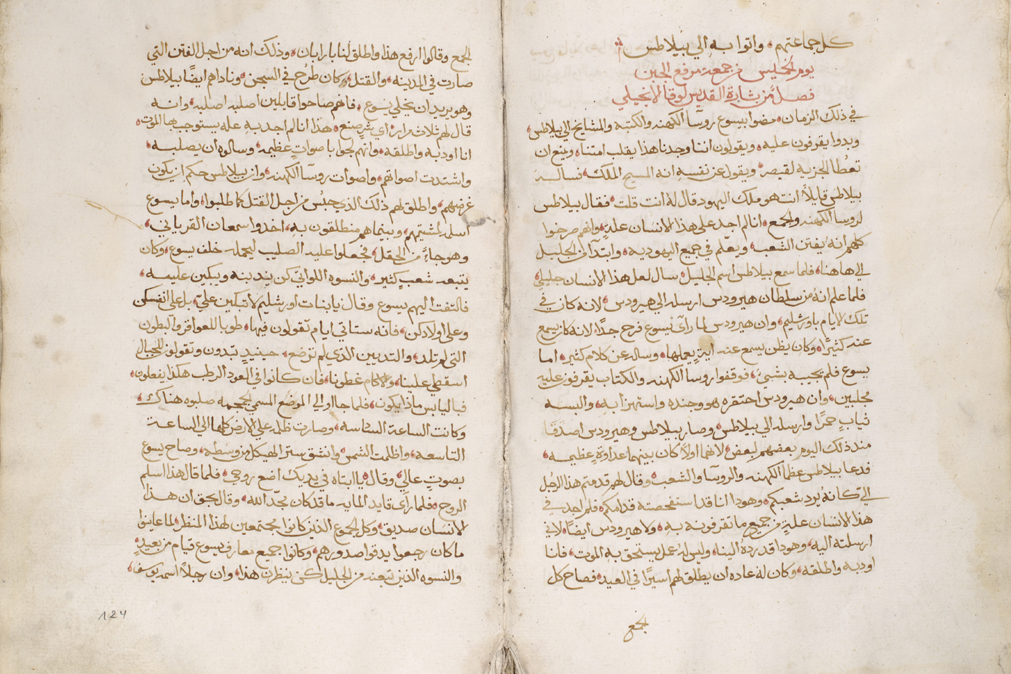 كل جماعتهم واتوا به الي بيلاطس
يوم الخميس من جمعة مرفع الجبن
فصل من بشارة القديس لوقا الانجيلي
في ذلك الزمان مضوا بيسوع روسآ الكهنه والكتبة والمشايخ الي بيلاطس
وبدوا يقرفون عليه ويقولون اننا وجدنا هذا يقلب امتنا ويمنع ان
تعطا الجزية لقيصر ويقول عن نفسه انه المسيح الملك فساله
بيلاطس قايلاً انت هو ملك اليهود قال له انت قلت فقال بيلاطس
لروسآ الكهنه والجمع انا لم اجد علي هذا الانسان علة وانهم صرخوا
كلهم انه يفتن الشعب ويعلم في جميع اليهوديه وابتدآ من الجليل
الي هاهنا فلما سمع بيلاطس اسم الجليل سال لعل هذا الانسان جليلي
فلما علم انه من سلطان هيرودس ارسله الي هيرودس لانه كان في
تلك الايام باورشليم وان هيرودس لما رآى يسوع فرح جدًا لانه كان يسمع
عنه كثيرًا وكان يظن يسمع عنه اية يعملها وساله عن كلام كثير اما
يسوع فلم يجيبه بشي فوقفوا روسآ الكهنه والكتاب يقرفون عليه
ملحين وان هيرودس احتقره هو وجنده واستهزآ به والبسه
ثياب حمرًا وارسله الي بيلاطس وصار بيلاطس وهيرودس اصدقا
منذ ذلك اليوم بعضهم لبعض لانهما اولاً كان بينهما عداوة عظيمه
فدعا بيلاطس عظمآ الكهنه والروسآ والشعب وقال لهم قدمتم هذا الرجل
الي كانه يرد شعبكم وهودا انا قد استفحصته قدامكم فلم اجد في
هذا الانسان علة من جميع ما تقرفونه به ولا هيرودس ايضًا لاني
ارسلته اليه وهودا قد رده الينا وليس له عمل يستحق به الموت فانا
اودبه واطلقه وكان له عاده ان يطلق لهم اسيرًا في العيد فصاح كل
الجمع
الجمع وقالوا ارفع هذا واطلق لنا بارابان وذلك انه من اجل الفتن التي
صارت في المدينه والقتل وكان طُرح في السجن وناداهم ايضًا بيلاطس
وهو يريد ان يخلي يسوع فانهم صاحوا قايلين اصلبه اصلبه وانه
قال لهم ثلاث مرار اي شر صنع هذا انا لم اجد به عله يستوجب بها الموت
انا اودبه واطلقه وانهم لجوا باصوات عظيمه وسالوه ان يصلبه
واشتدت اصواتهم واصوات روسآ الكهنه وان بيلاطس حكم ان يكون
غرضهم واطلق لهم ذلك الذي حبس من اجل القتل كما طلبوا واما يسوع
اسلم لمشيتهم وبينما هم منطلقون به اخدوا سمعان القرياني
وهو جآءٍ من الحقل فجعلوا عليه الصليب ليحمله خلف يسوع وكان
يتبعه شعب كثير والنسوه اللواتي كن يندبنه ويبكين عليه
فالتفت اليهم يسوع وقال يا بنات اورشليم لا تبكين علي بل علي انفسكن
وعلي اولادكن فانه ستاتي ايام تقولون فيها طوبا للعواقر والبطون
التي لم تلد والثديين الذي لم ترضع حينيدٍ تبدون وتقولن للجبال
اسقطي علينا وللاكام غطونا فان كانوا في العود الرطب هكذا يفعلون
فباليابس ماذا يكون فلما جاوا الي الموضع المسمي الجمجمه صلبوه هناك
وكانت الساعة السادسه وصارت ظلمه علي الارض كلها الي الساعة
التاسعه واظلمت الشمس وانشق ستر الهيكل من وسطه وصاح يسوع
بصوتٍ عالٍ وقال يا ابتاه في يديك اضع روحي فلما قال هذا اسلم
الروح فلما رآى قايد المايه ما قد كان مجّد اللّٰه وقال بحق ان هذا
الانسان صديق وكل الجموع الذين كانوا مجتمعين لهذا المنظر لما عاينوا
ما كان رجعوا يدقوا صدورهم وكانوا جميع معارف يسوع قيام من بعيدٍ
والنسوه الذين تبعنه من الجليل كن ينظرن هذا وان رجلاً اسمه يوسف
124